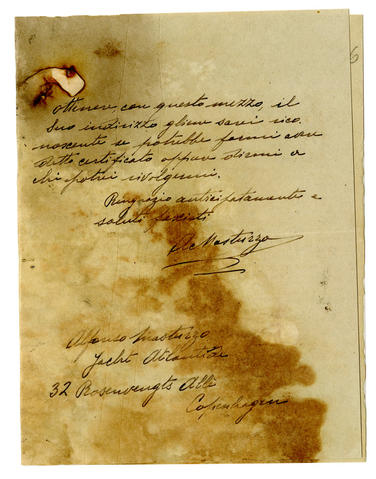 ottenere con questo mezzo, il
Suo indirizzo gliene sarei rico
noscente se potrebbe farmi avere
detto certificato oppure dirmi a
chi potrei rivolgermi.
Ringrazio anticipatamente e
saluti fascisti
Mastuzzo
Alfonso Mastuzzo
Yacht Atlantide
32 Rosenvengts Allé
Copenhagen
6